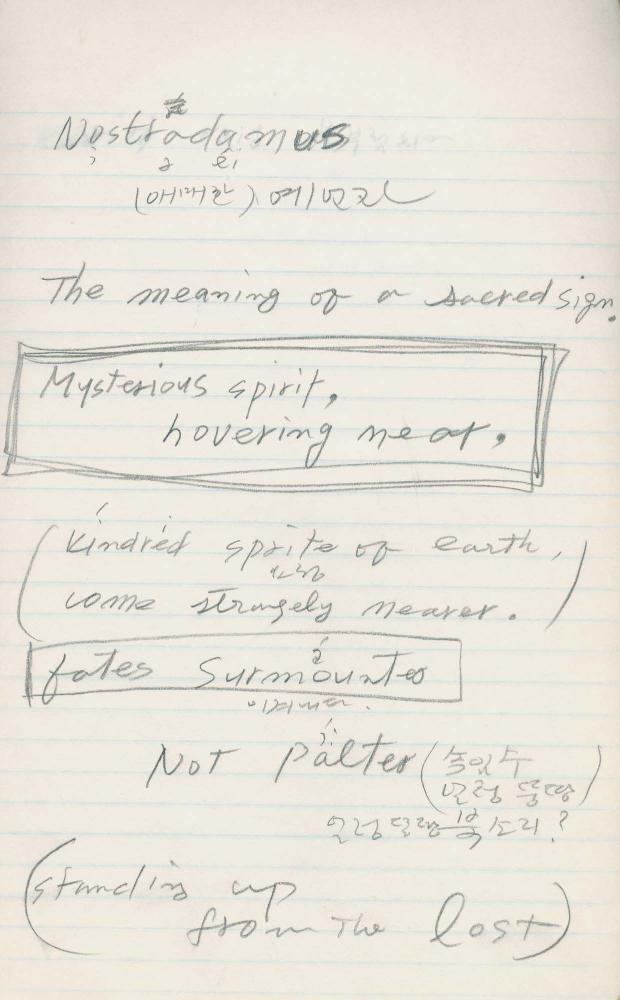 Nostradamus
(애매한) 예언자
The meaning of a sacred sign.
Mysterious spirit,
hovering near,
(kindred sprite of earth,
요정
come strangely nearer.)
fates surmounted
이겨내다.
Not palter (속임수
얼렁뚱땅)
소리?
(standing up
from The lost)